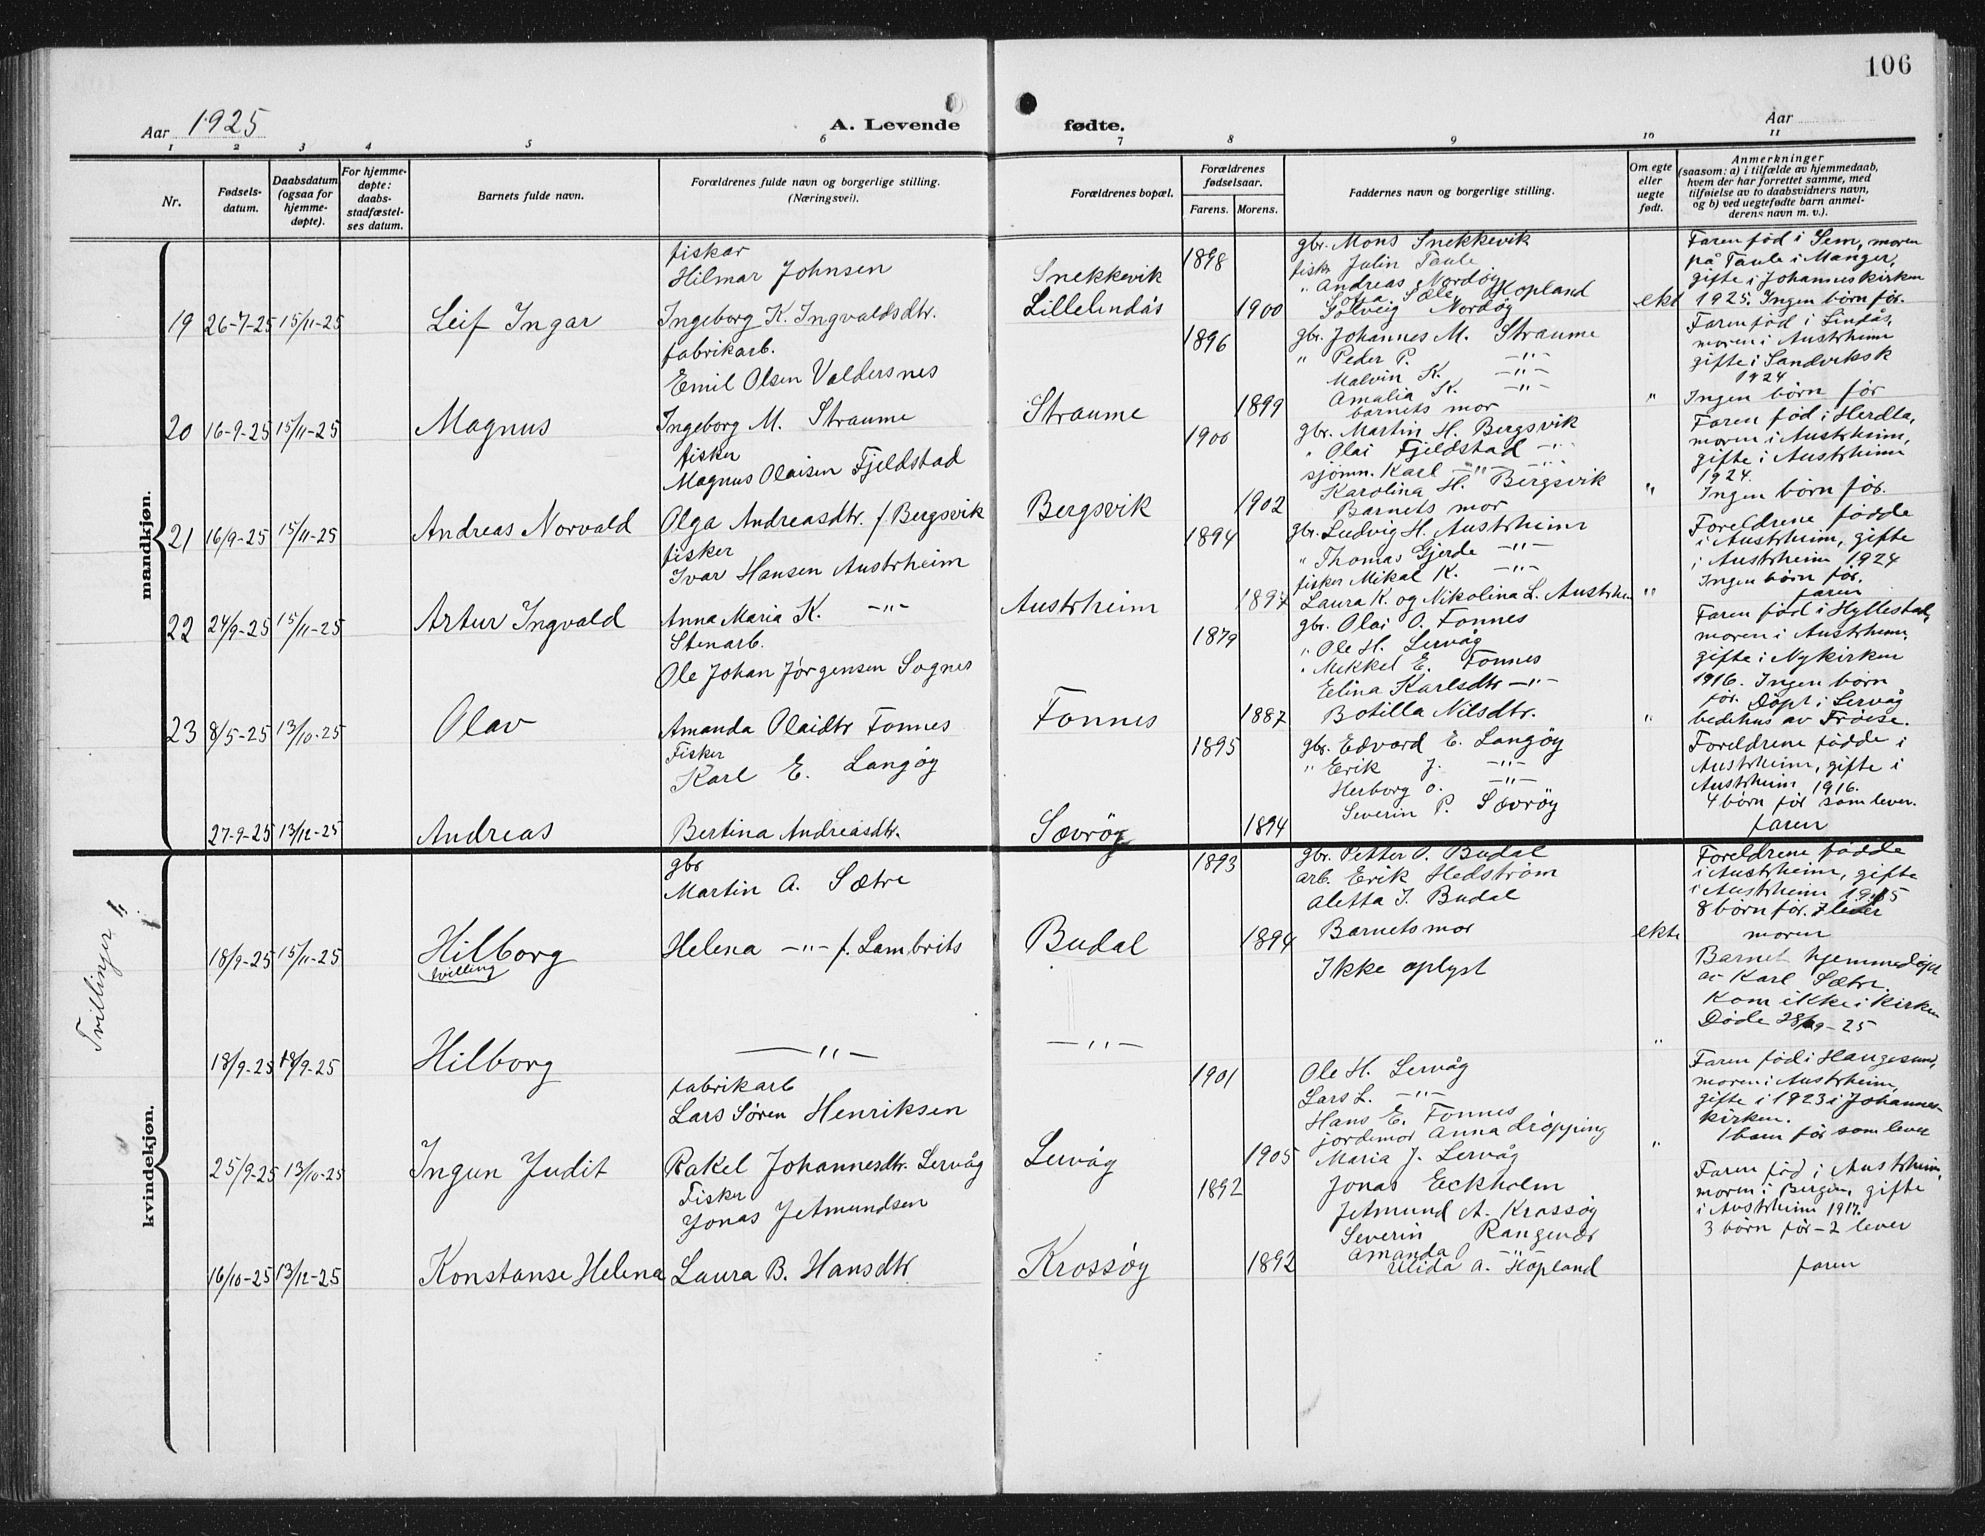 106
Aar 1925
A. Levende fødte.
Aar
1 2 3 4 5 6 7 8 9 10 11
Nr.
Fødsels-
datum.
Daabsdatum
(ogsaa for
hjemme-
døpte).
For hjemme-
døpte:
daabs-
stadfæstel-
ses datum.
Barnets fulde navn.
Forældrenes fulde navn og borgerlige stilling.
(Næringsvei).
Forældrenes bopæl.
Forældrenes
fødselsaar.
Farens. Morens.
Faddernes navn og borgerlige stilling.
Om egte
eller
uegte
født.
Anmerkninger
(saasom: a) i tilfælde av hjemmedaab,
hvem der har forrettet samme, med
tilføielse av to daabsvidners navn,
og b) ved uegtefødte barn anmel-
derens navn m. v.).
mandkjøn.
19 26-7-25 15/11-25 Leif Ingar
fiskar
Hilmar Johnsen
Ingeborg K. Ingvaldsdtr.
Snekkevik
Lillelindås
1898
1900
gbr. Mons Snekkevik
fisk. Julin Taule
" Andreas Nordøy
Sofia Sæle, Hopland
Solveig Nordøy
ekt
Faren fød i Sem, moren
på Taule i Manger,
gifte i Johanneskirken
1925. Ingen børn før.
20 16-9-25 15/11-25 Magnus
fabrikarb.
Emil Olsen Valdersnes
Ingeborg M. Straume
Straume
1896
1899
gbr. Johannes M. Straume
" Peder P. -"-
Malvin K. -"-
Amalia K. -"-
barnets mor
"
Faren fød i Lindås,
moren i Austrheim
gifte i Sandviksk
1924
Ingen børn før
21 16/9-25 15/11-25 Andreas Norvald
fisker
Magnus Olaisen Fjeldstad
Olga Andreasdtr. f. Bergsvik
Bergsvik
1900
1902
gbr. Martin H. Bergsvik
" Olai Fjeldstad -"-
sjømn. Karl -"- -"-
Karolina H. Bergsvik
Barnets mor
"
Faren fød i Herdla,
moren i Austrheim,
gifte i Austrheim
1924.
Ingen børn før.
22 24/9-25 15/11-25 Artur Ingvald
fisker
Ivar Hansen Austrheim
Anna Maria K. -"-
Austrheim
1894
1897
gbr. Ludvig H. Austrheim
" Thomas Gjerde -"-
fisker Mikal K. -"-
Laura K. og Nikolina L. Austrheim
"
Foreldrene fødde
i Austrheim, gifte
i Austrheim 1924
Ingen børn før.
faren
23 8/5-25 13/10-25 Olav
Stenarb.
Ole Johan Jørgensen Sognes
Amanda Olaidtr Fonnes
Fonnes
1879
1887
gbr. Olai O. Fonnes
" Ole H. Lervåg
" Mikkel E. Fonnes
Elina Karlsdtr -"-
Botilla Nilsdtr.
"
Faren fød i Hyllestad,
moren i Austrheim,
gifte i Nykirken
1916. Ingen børn
før. Døpt i Lervåg
bedehus av Frøise.
27-9-25 13/12-25 Andreas
Fisker
Karl E. Langøy
Bertina Andreasdtr.
Sævrøy
1895
1894
gbr. Edvard E. Langøy
" Erik J. -"-
Herborg O. -"-
Severin P. Sævrøy
Foreldrene fødde i
Austrheim, gifte i
Austrheim 1916.
4 børn før som lever.
faren
kvindekjøn.
Tvillinger
18/9-25 15/11-25 Hilborg
tvilling
gbr
Martin A. Sætre
Helena -"- f. Lambrits
Budal
1893
1894
gbr. Petter O. Budal
arb. Erik Hedstrøm
Aletta I. Budal
Barnets mor
ekte
Foreldrene fødde
i Austrheim, gifte
i Austrheim 1915
8 børn før. 7 lever
moren
18/9-25 18/9-25 Hilborg
-"-
-"-
Ikke oplyst
"
Barnet hjemmedøpt
av Karl Sætre.
Kom ikke i kirken
Døde 28/9-25
25/9-25 13/10-25 Ingun Judit
fabrikarb
Lars Søren Henriksen
Rakel Johannesdtr. Lervåg
Lervåg
1901
1905
Ole H. Lervåg
Lars L. -"-
Hans E. Fonnes
jordemor Anna Drøpping
Maria J. Lervåg
"
Faren fød i Haugesund,
moren i Austrheim,
gifte i 1923 i Johannes-
kirken.
1 barn før som lever
16/10-25 13/12-25 Konstanse Helena
Fisker
Jonas Jetmundsen
Laura B. Hansdtr
Krossøy
1892
1892
Jonas Eckholm
Jetmund A. Krossøy
Severin Rangenær
Amanda -"-
Ulida A. Hopland
Faren fød i Austrheim,
moren i Bergen, gifte
i Austrheim 1917.
3 børn før - 2 lever
faren